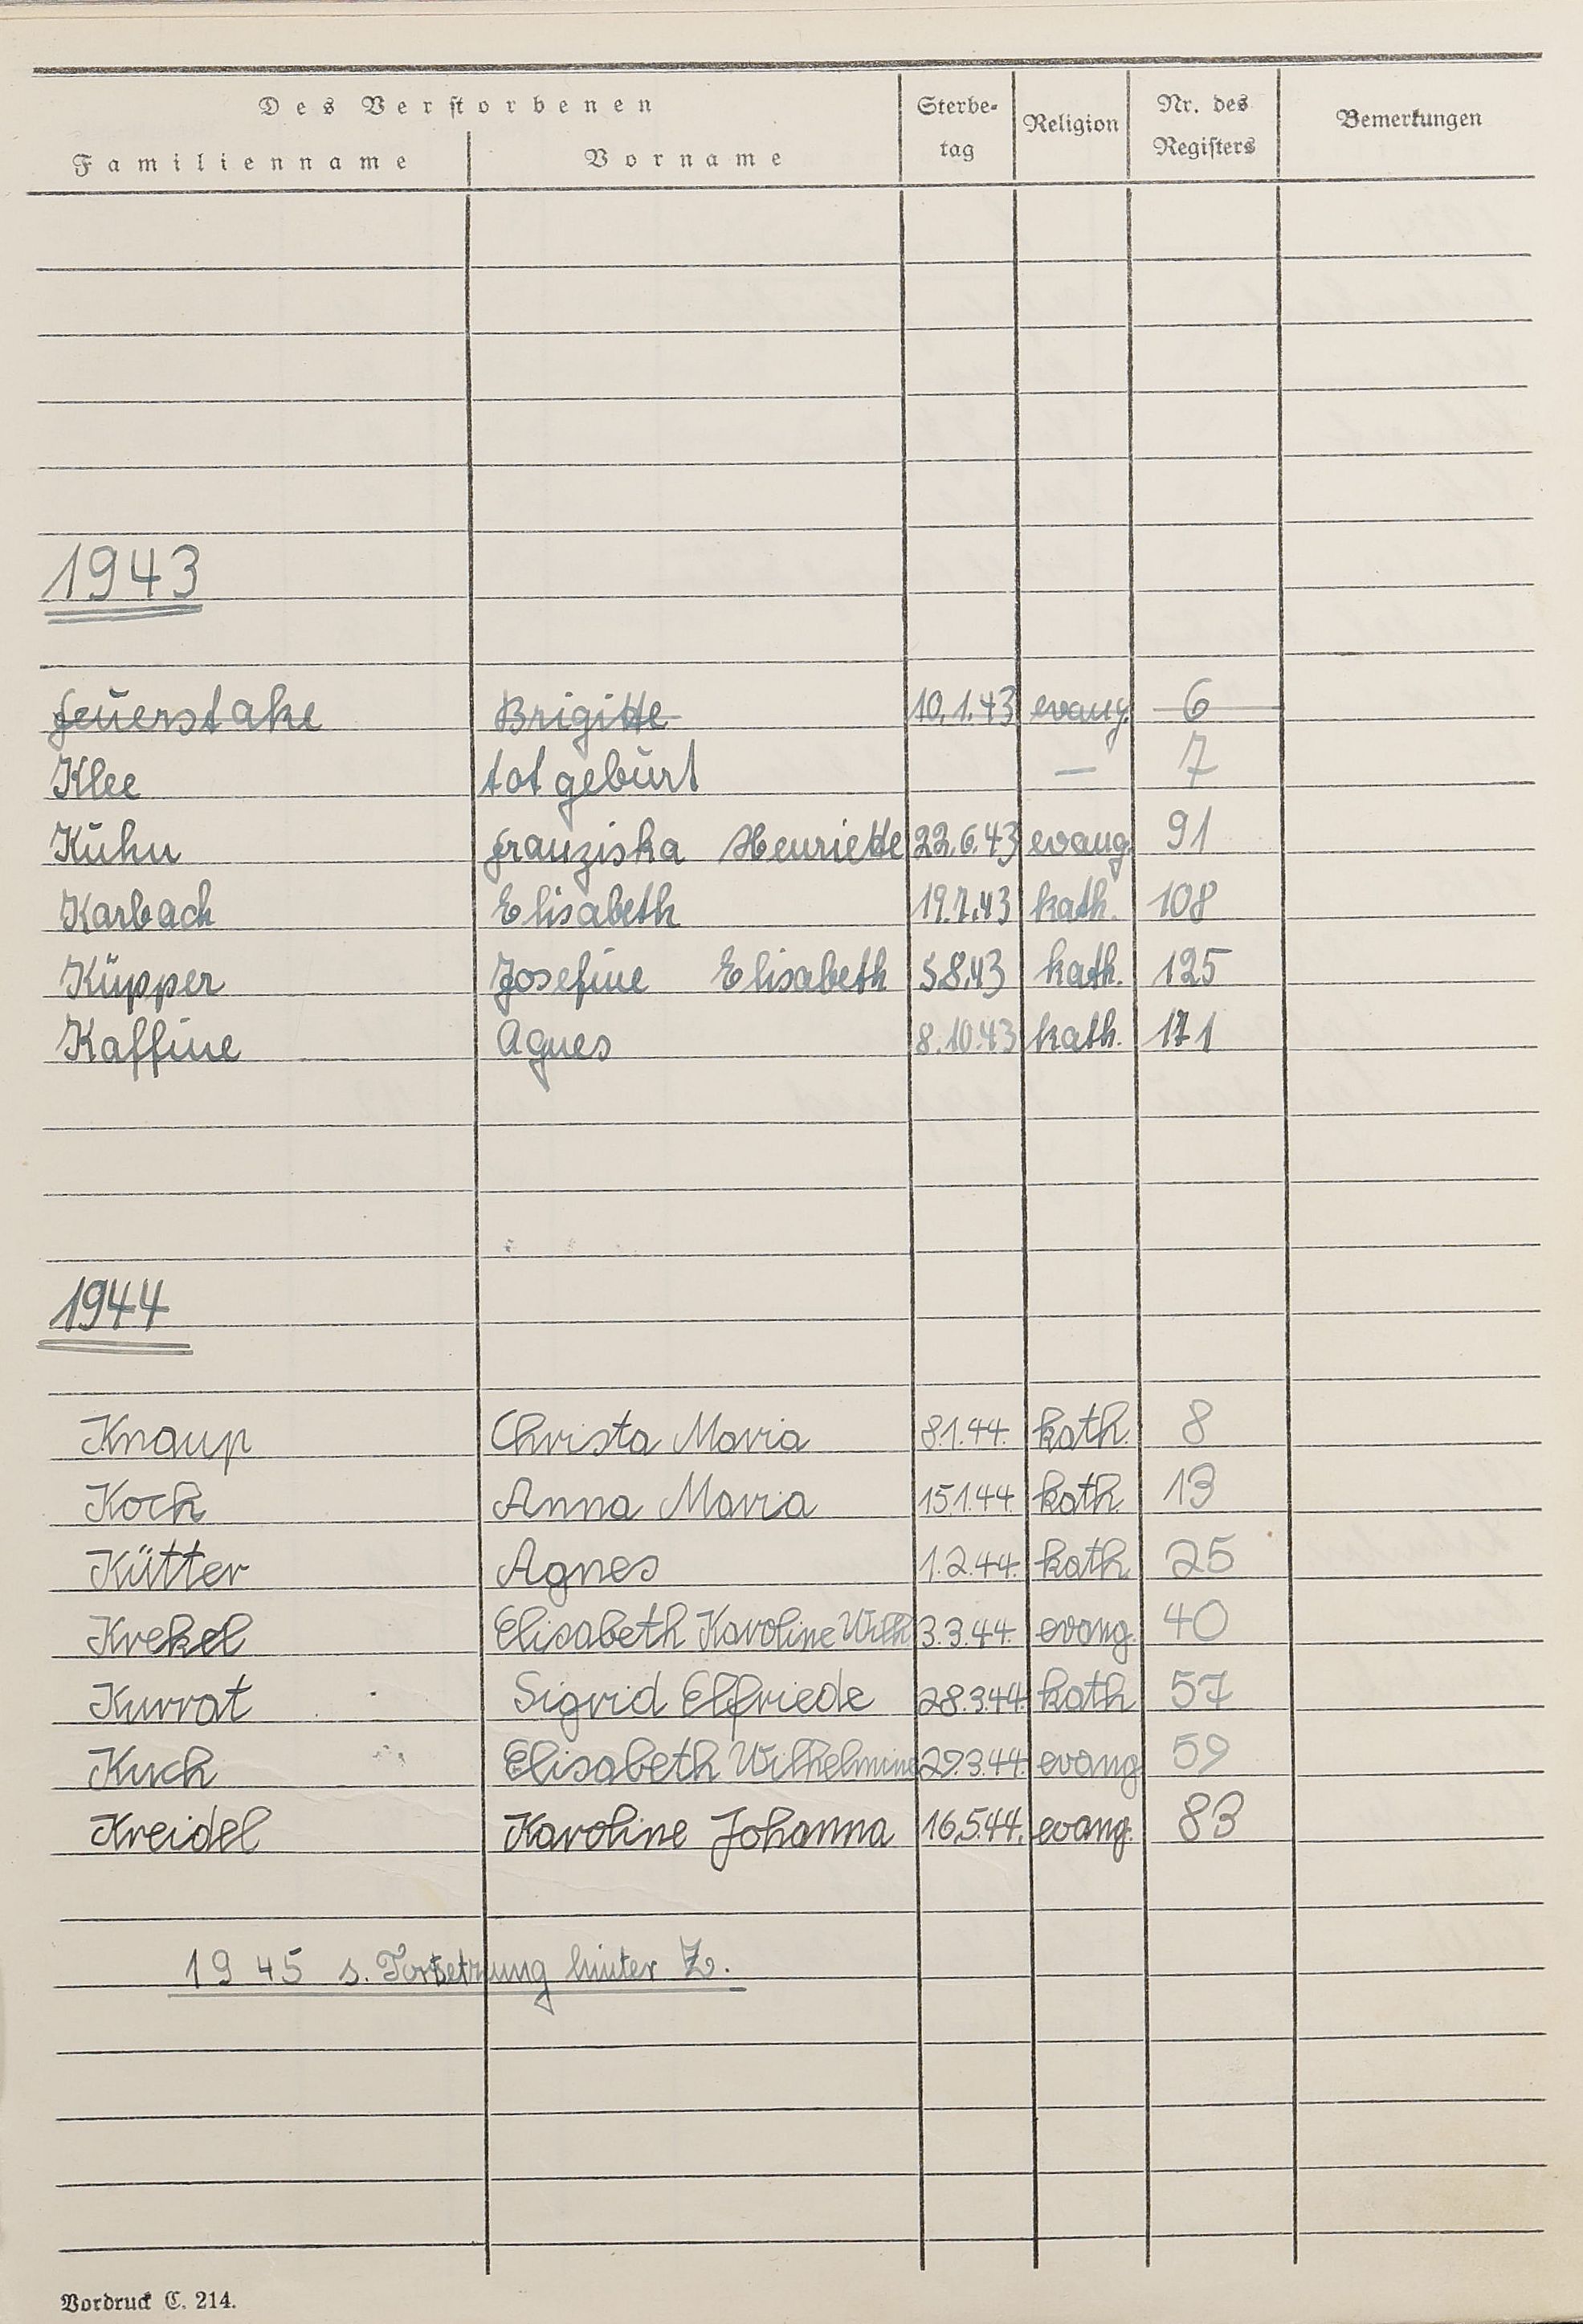 Des Verstorbenen
Familienname Vorname Sterbe-tag Religion Nr. des Registers Bemerkungen
1943
Feuerstake Brigitte 10.1.43 evang. 6
Klee totgeburt — 7
Kuhn Franziska Henriette 22.6.43 evang. 91
Karbach Elisabeth 19.7.43 kath. 108
Küpper Josefine Elisabeth 5.8.43 kath. 125
Kaffine Agnes 8.10.43 kath. 171
1944
Knaup Christa Maria 8.1.44. kath. 8
Koch Anna Maria 15.1.44. kath. 13
Kütter Agnes 1.2.44. kath 25
Krekel Elisabeth Karoline Wilh 3.3.44. evang. 40
Kurrat Sigrid Elfriede 28.3.44. kath 57
Kuch Elisabeth Wilhelmine 29.3.44. evang 59
Kreidel Karoline Johanna 16.5.44. evang. 83
1945 s. Forsetzung hinter Z.
Vordruck C. 214.